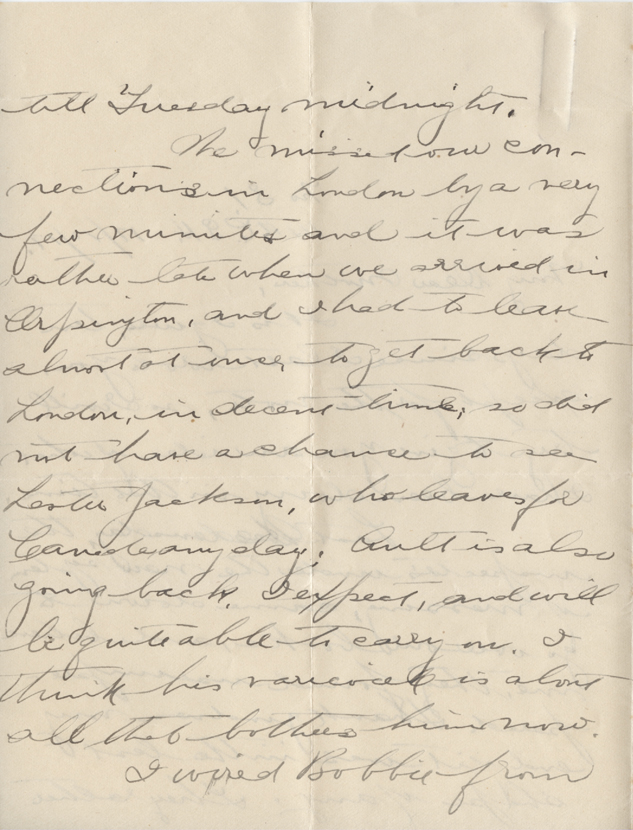 till Tuesday midnight.
We missed our con-
nections in London by a very
few minutes and it was
rather late when we arrived in
Orpington, and I had to leave
almost at once to get back to
London, in decent time; so did
not have a chance to see
Lester Jackson, who leaves for
Canada any day; Ault is also
going back, I expect, and will
be quite able to carry on. I
think his varicocele is about
all that bothers him now.
I wired Bobbie from